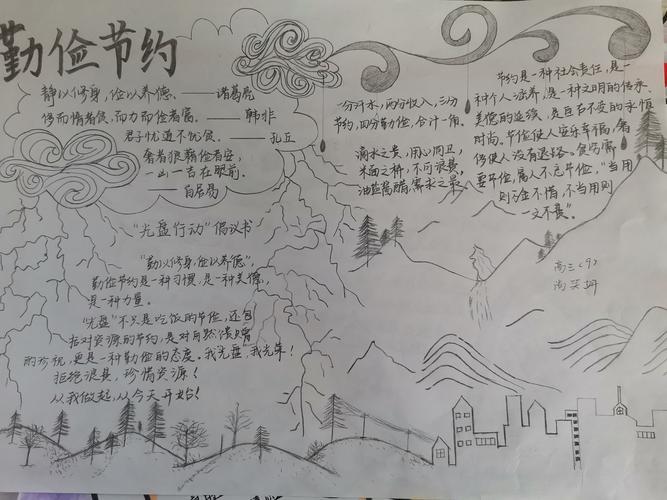 勤俭节约
静以修身，俭以养德。——诸葛亮
侈而惰者贫，而力而俭者富。——韩非
君子忧道不忧贫。——孔丘
奢者狼藉俭者安，
一凶一吉在眼前。
——白居易
一分汗水，两分收入，三分
节约，四分勤俭，合计一角。
滴水之贵，用心用卫，
米面之耕，不可浪费，
油盐酱醋，需求之最。
节约是一种社会责任，是一
种个人涵养，是一种文明的传承、
美德的延续，是亘古不变的永恒
时尚。节俭使人安乐幸福，奢
侈使人没有退路。贫穷需
要节俭，富人不忘节俭，“当用
则万金不惜，不当用则
一文不费”。
高三（9）
尚笑妍
“光盘行动”倡议书
“勤以修身，俭以养德”，
勤俭节约是一种习惯，是一种美德，
是一种力量。
“光盘”不只是吃饭的节俭，还包
括对资源的节约，是对自然馈赠
的珍视，更是一种勤俭的态度。我光盘，我光荣！
拒绝浪费，珍惜资源！
从我做起，从今天开始！